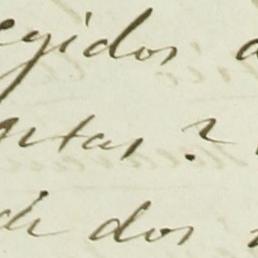 egidos a
rtas?
di dos